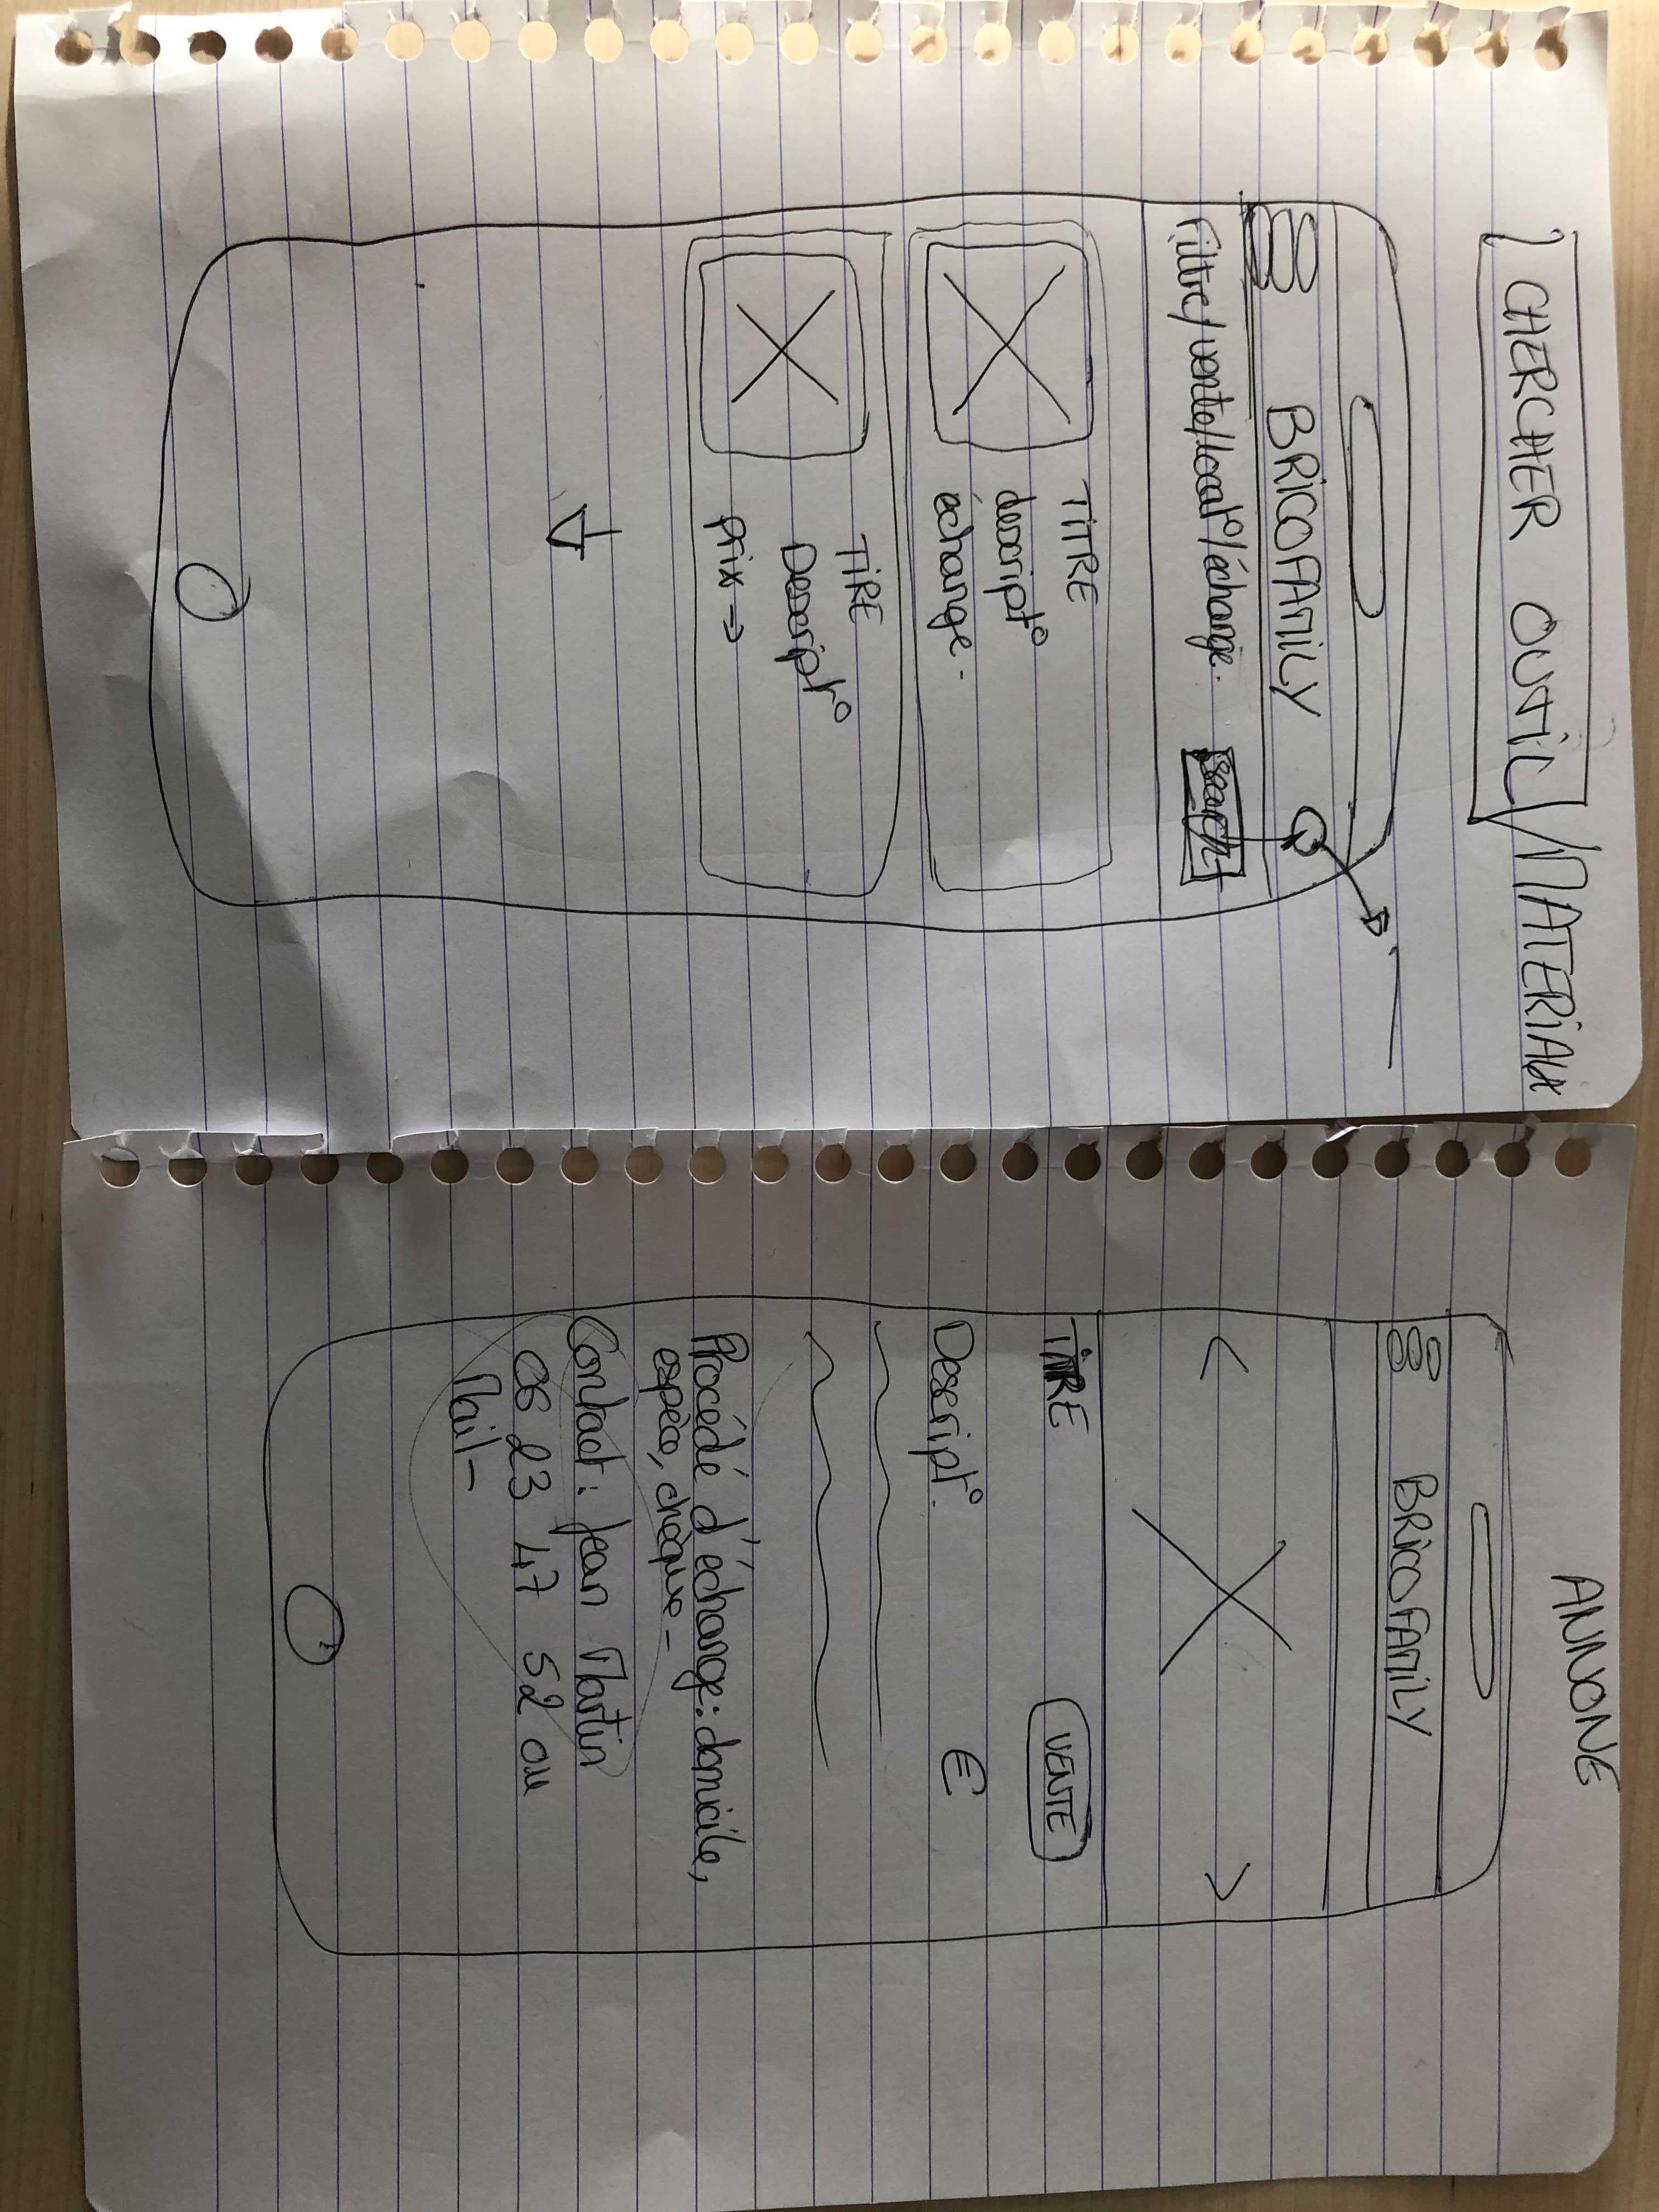 CHERCHER OUTIL/MATERIAUX
BRICOFAMILY
Filtre/vente/locat°/échange.
search
TITRE
descript°
échange.
TiRE
Descript°
prix →
ANNONE
BRICOFAMILY
TITRE
VENTE
Descript°.
€
Procédé d'échange: domicile,
espèce, chèque -
Contact: Jean Martin
06 23 47 52 ou
Mail-